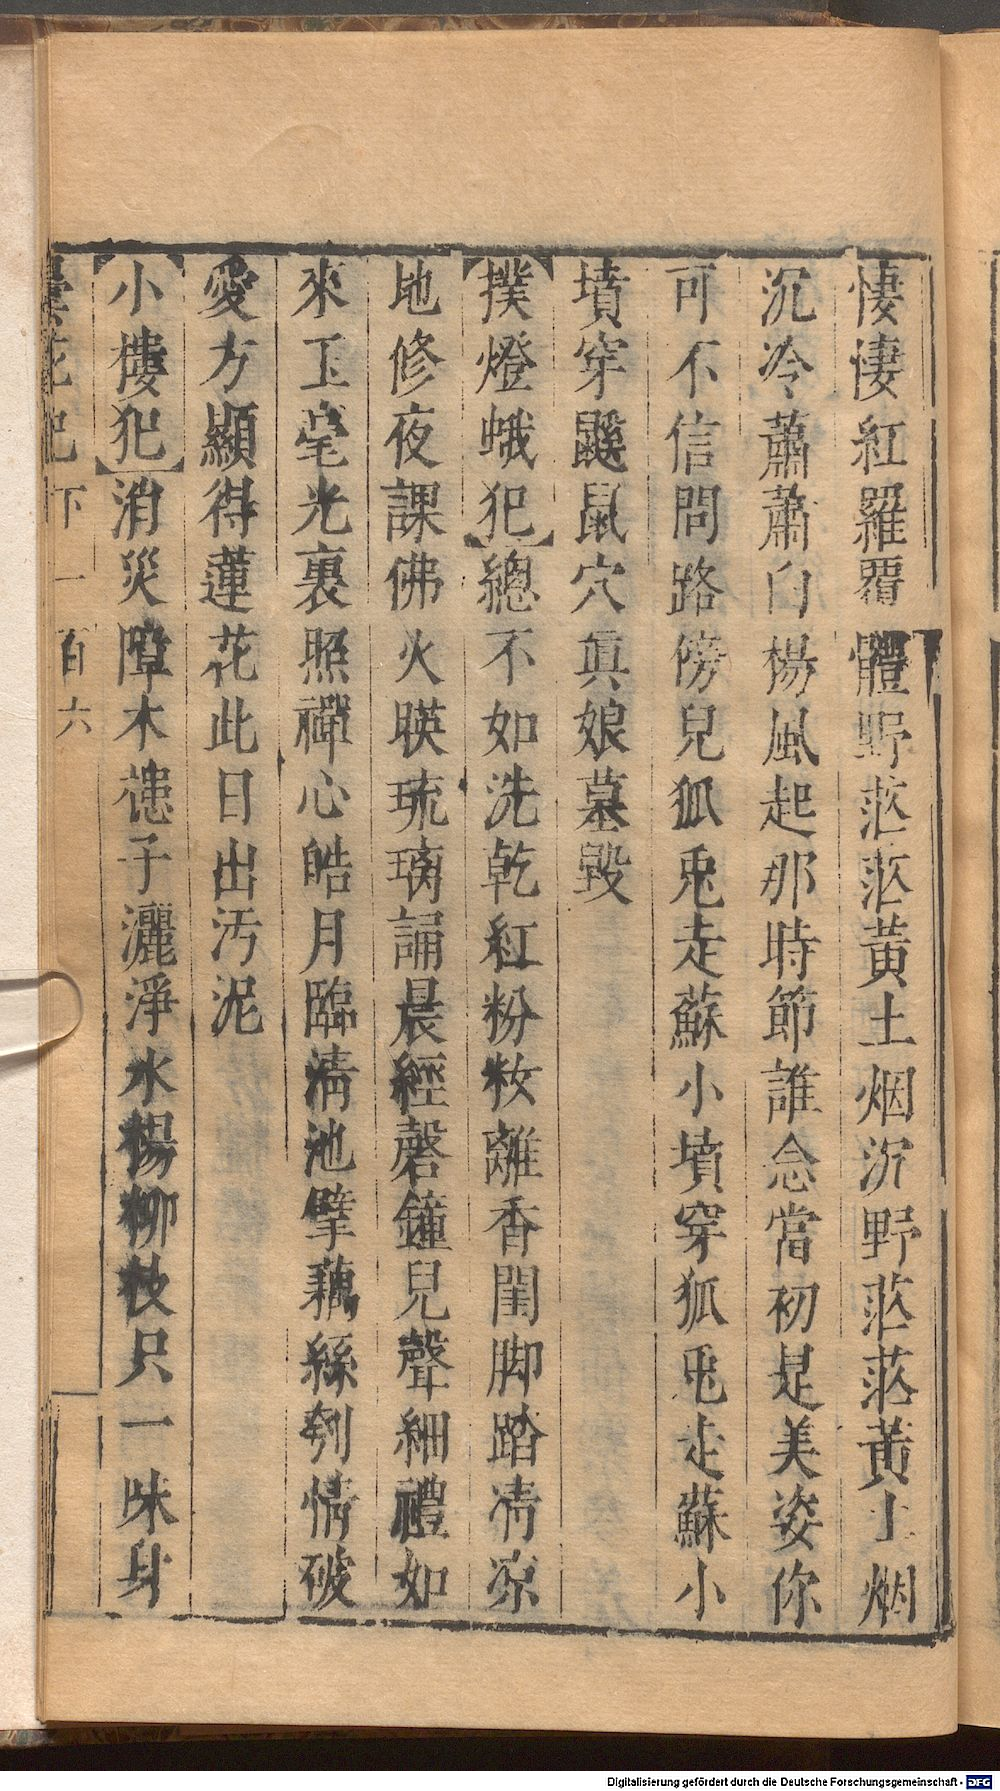 悽悽紅羅覆體野茫茫黃土烟沉野茫茫黃土烟
沉冷蕭蕭白楊風起那時節誰念當初是美姿你
可不信問路傍兒狐兎走蘇小墳穿狐兎走蘇小
墳穿鼷鼠穴真娘墓毀
【撲燈蛾犯】總不如洗乾紅粉妝離香閨脚踏凊凉
地修夜課佛火暎琉璃誦晨經磬鐘兒聲細禮如
來玉毫光裏照禪心皓月臨清池擘藕絲刳情破
愛方顯得蓮花此日出汚泥
【小樓犯】消災障木槵子灑淨水楊柳枝只一味身
曇花記 下 一百六
Digitalisierung gefördert durch die Deutsche Forschungsgemeinschaft - DFG